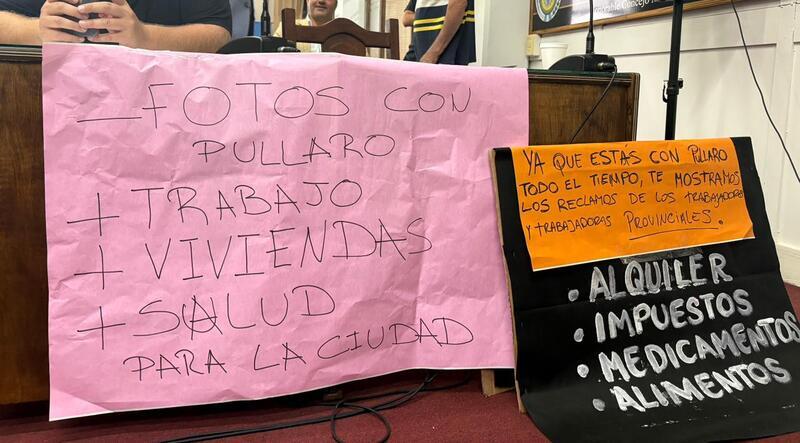 — FOTOS CON
PULLARO
+ TRABAJO
+ VIVIENDAS
+ SALUD
PARA LA CIUDAD
YA QUE ESTÁS CON PULLARO
TODO EL TIEMPO, TE MOSTRAMOS
LOS RECLAMOS DE LOS TRABAJADORES
Y TRABAJADORAS PROVINCIALES.
• ALQUILER
• IMPUESTOS
• MEDICAMENTOS
• ALIMENTOS